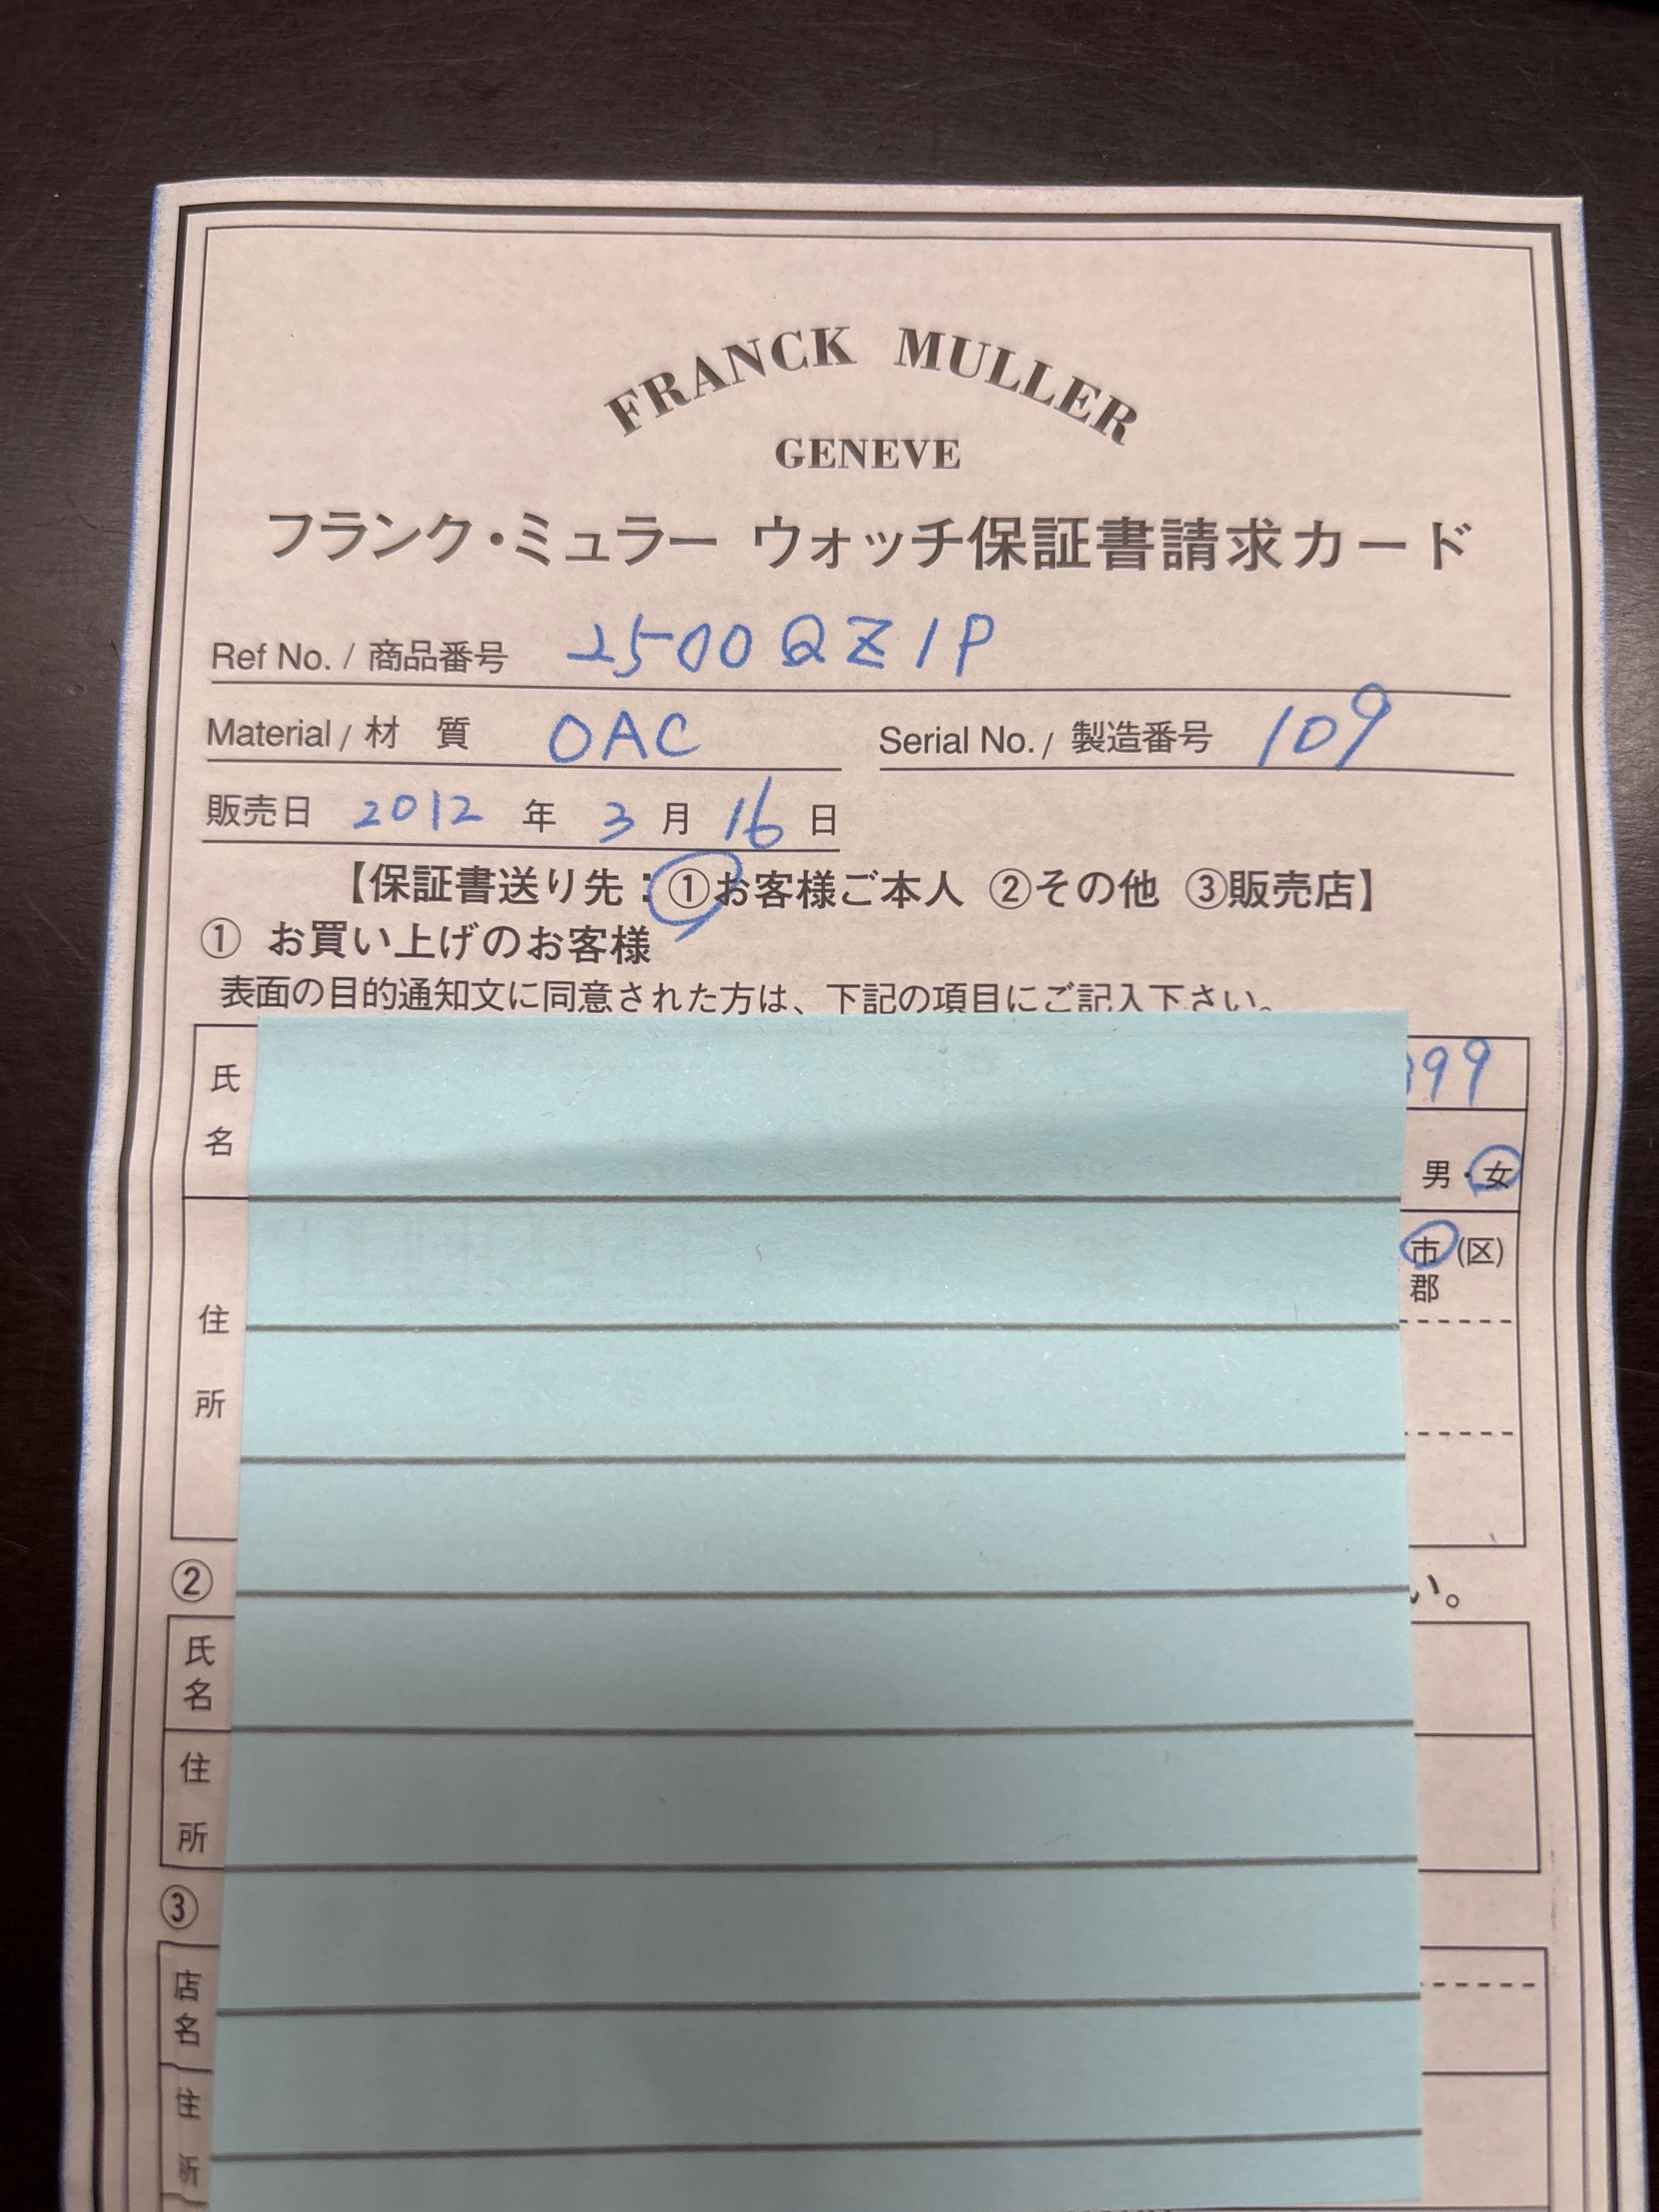 FRANCK MULLER
GENEVE
フランク・ミュラー ウォッチ保証書請求カード
Ref No. / 商品番号 2500QZ1P
Material / 材 質 OAC Serial No. / 製造番号 109
販売日 2012 年 3 月 16 日
【保証書送り先：①お客様ご本人 ②その他 ③販売店】
① お買い上げのお客様
表面の目的通知文に同意された方は、下記の項目にご記入下さい。
氏名 99
男・女
住所 市(区)
郡
② い。
氏名
住所
③
店名
住所